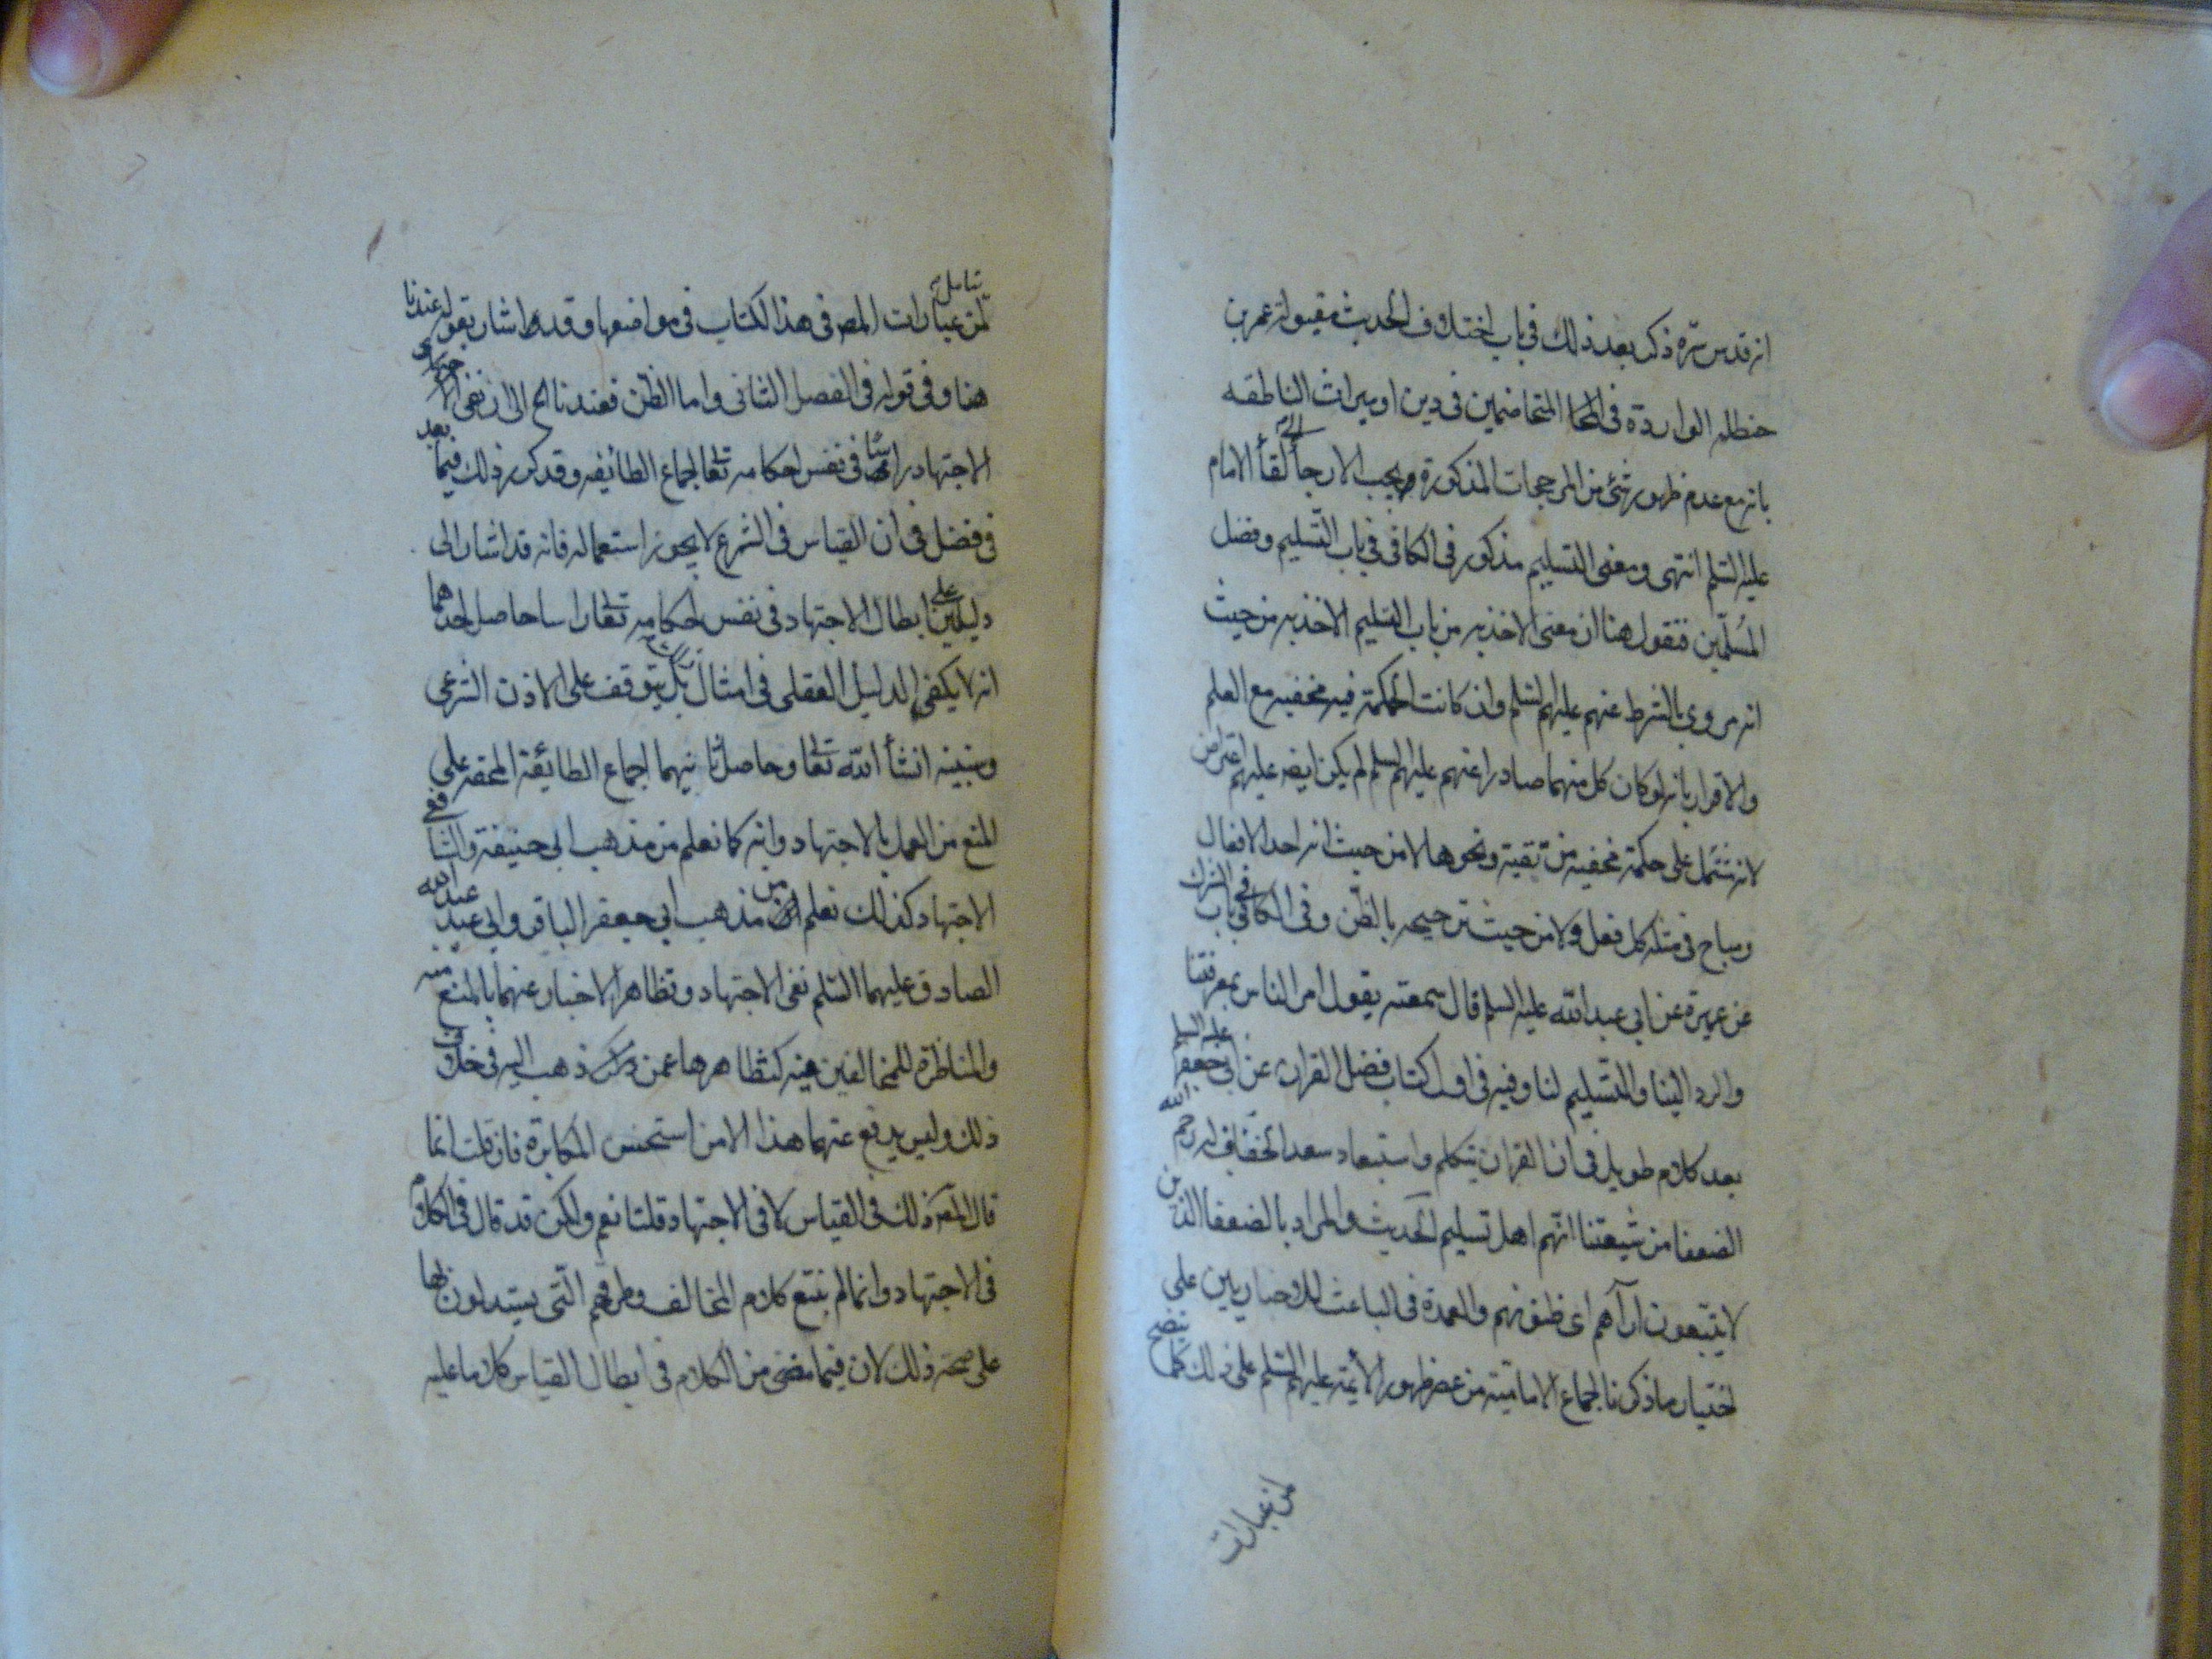 انه قدس سره ذكر بعد ذلك في باب اختلاف الحديث مقبولة عمر بن
حنظله الواردة في المتخاصمين في دين او ميراث الناطقه
بانه مع عدم ظهور شئ من المرجحات المذكورة يجب الارجأ الى لقأ الامام
عليه السلم انتهى ومعنى التسليم مذكور في الكافي في باب التسليم وفضل
المسلمين فنقول هنا ان معنى الاخذ به من باب التسليم الاخذ به من حيث
انه مروي بالشرط عنهم عليهم السلم وان كانت الحكمة فيه مخفيه مع العلم
والاقرار بانه لو كان كل منهما صادرا عنهم عليهم السلم لم يكن ايضه عليهم اعتراض
لانه تشتمل على حكمة مخفيه من تقية ونحوها لا من حيث انه احد الافعال
ومباح في مثله كل فعل ولا من حيث ترجيحه بالظن وفي الكافي في باب الشرك
عن عميرة عن ابي عبد الله عليه السلم قال سمعته يقول امر الناس بمعرفتنا
والرد الينا والتسليم لنا وفيه في اول كتاب فضل القران عن ابي جعفر عليه السلم
بعد كلام طويل في ان القران يتكلم واستبعاد سعد الخفاف له رحم الله
الضعفا من شيعتنا انهم اهل تسليم الحديث والمراد بالضعفا الذين
لا يتبعون ارآهم اى ظنونهم والعمدة في الباعث للاخباريين على
اختيار ما ذكرنا اجماع الامامية من عصر ظهور الأئمة عليهم السلم على ذلك كما يتضح
من عبارات
لمن تأمل عبارات المصه في هذا الكتاب في مواضعها وقد اشار بقوله عندنا
هنا وفي قوله في الفصل الثاني واما الظن فعندنا الخ الى نفي الاجتهاد
الاجتهاد راسا في نفس احكامه تعا اجماع الطائفه وقد كرر ذلك فيما بعد
في فصل في ان القياس في الشرع لا يجوز استعماله فانه قد اشار الى
دليلين على ابطال الاجتهاد في نفس احكامه تعا راسا حاصل احدهما
انه لا يكفي الدليل العقلي في امثال بل يتوقف على الاذن الشرعي
وسنبينه انشأ الله تعا وحاصل ثانيهما اجماع الطائفة المحقه على
المنع من العمل بالاجتهاد وانه كما نعلم من مذهب ابي حنيفة والشافعي
الاجتهاد كذلك نعلم من مذهب ابي جعفر الباقر وابي عبد الله
الصادق عليهما السلم نفي الاجتهاد وتظاهر الاخبار عنهما بالمنع منه
والمناظرة للمخالفين فيه كتظاهرها عمن ذهب اليه في خلاف
ذلك وليس يدفع عنهما هذا الا من استحسن المكابرة فان قلت انما
قال المصه ذلك في القياس لا في الاجتهاد قلنا نعم ولكن قد قال في الكلام
في الاجتهاد وانما لم نتتبع كلام المخالف وطرقهم التى يستدلون بها
على صحة ذلك لان فيما مضى من الكلام في ابطال القياس كلاما عليه